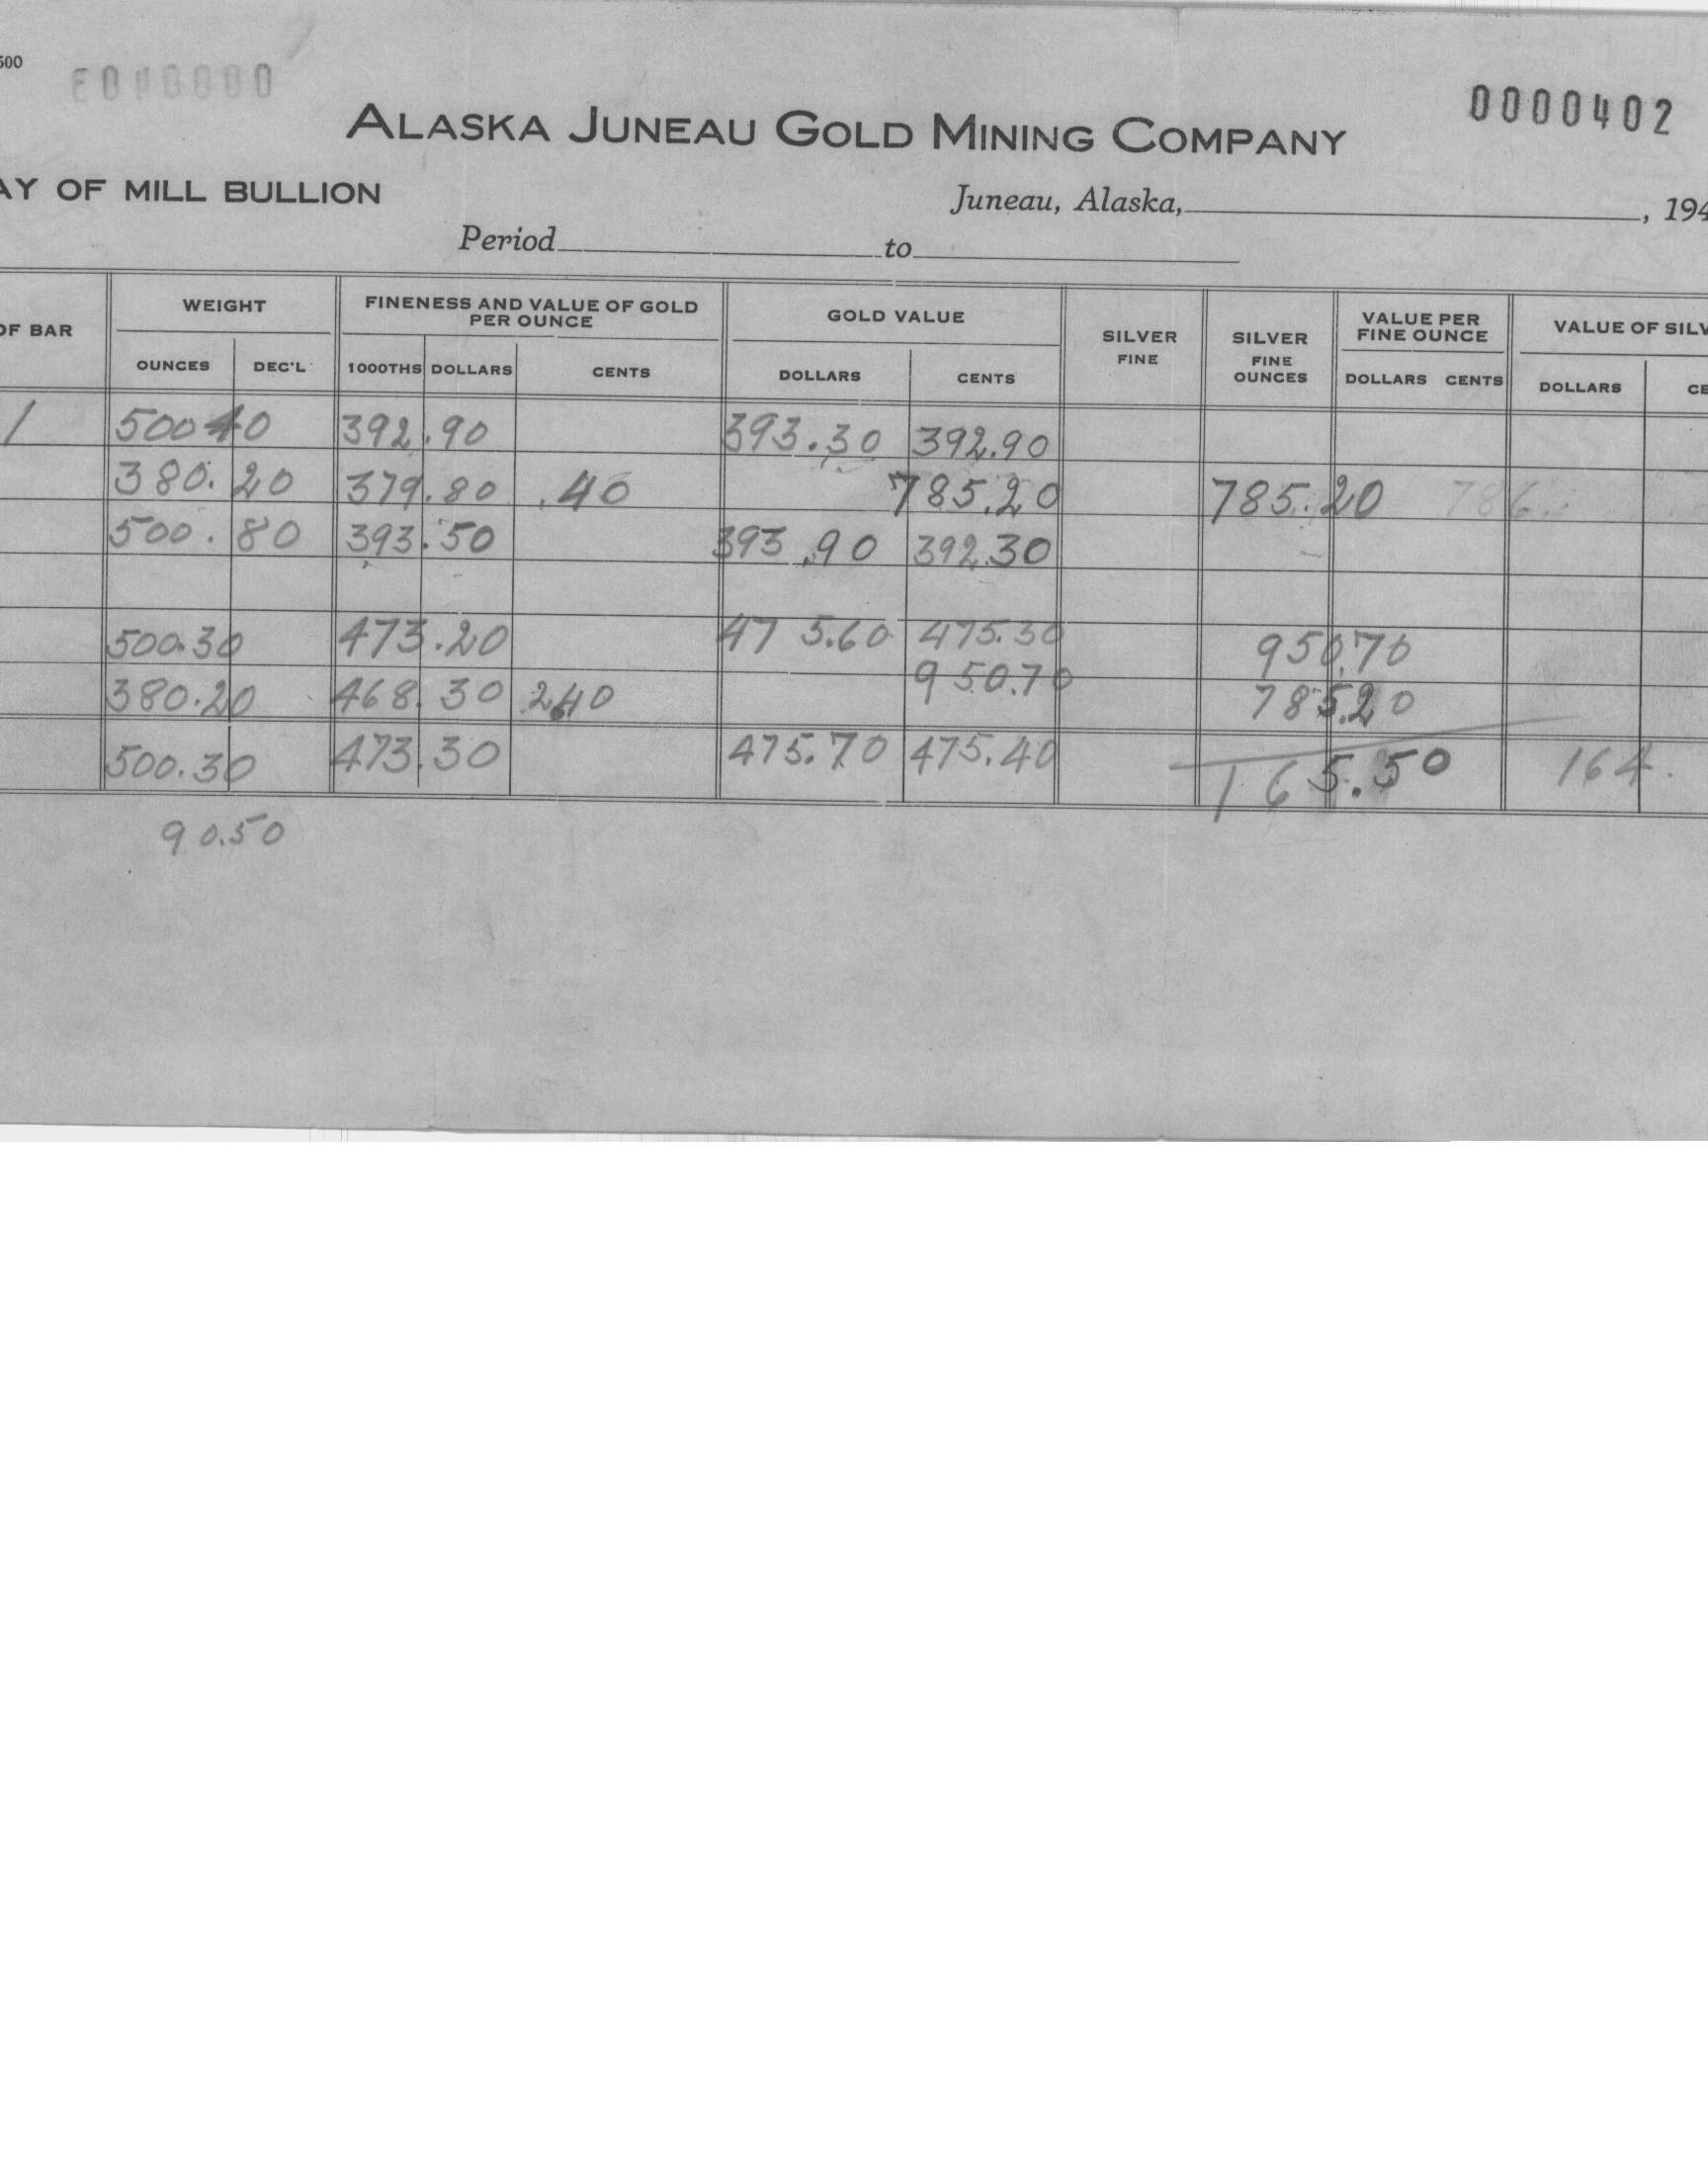 500
0000402
ALASKA JUNEAU GOLD MINING COMPANY
AY OF MILL BULLION
Juneau, Alaska, , 194
Period to
OF BAR WEIGHT FINENESS AND VALUE OF GOLD PER OUNCE GOLD VALUE SILVER FINE SILVER FINE OUNCES VALUE PER FINE OUNCE VALUE OF SILV
OUNCES DEC'L 1000THS DOLLARS CENTS DOLLARS CENTS DOLLARS CENTS DOLLARS CE
1 500 40 392.90 393.30 392.90
380.20 379.80 .40 785.20 785.20 786.
500.80 393.50 393.90 392.30
500.30 473.20 475.60 475.30 950.70
950.70
380.20 468.30 2.40 785.20
500.30 473.30 475.70 475.40 165.50 164.
90.50